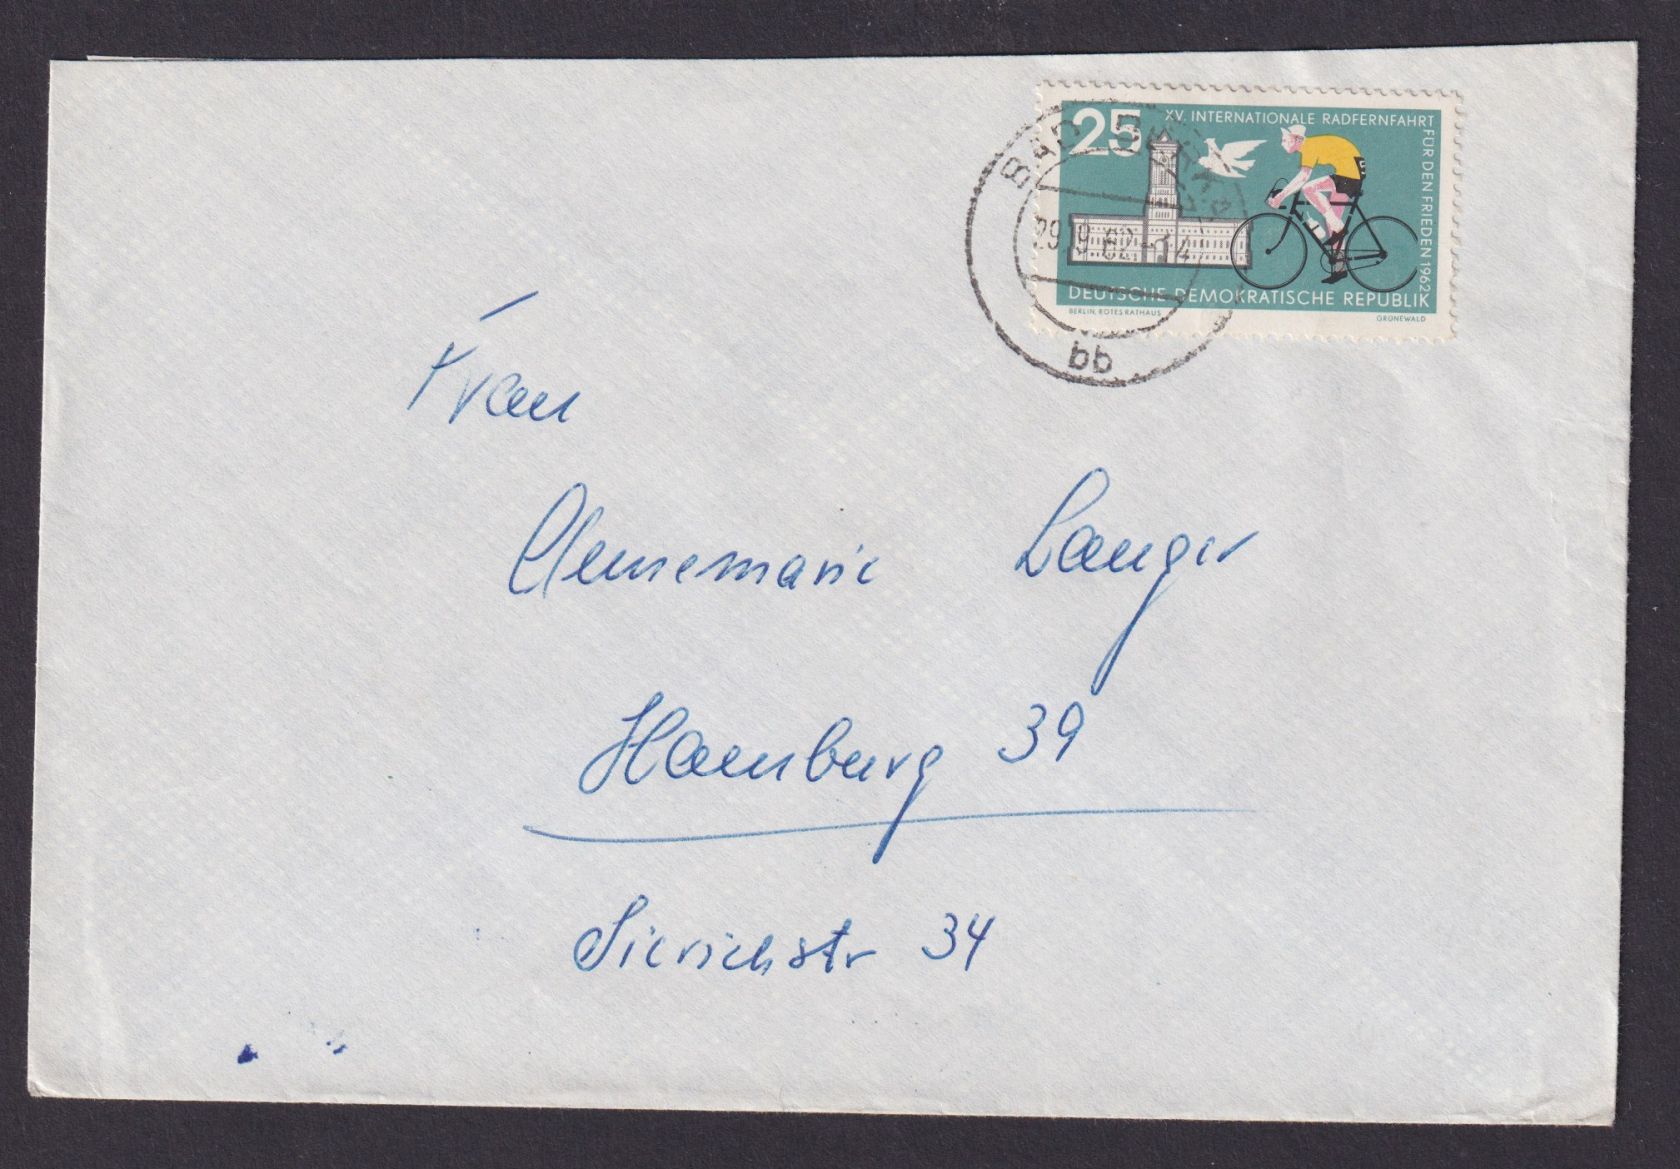 25
XV. INTERNATIONALE RADFERNFAHRT
FÜR DEN FRIEDEN 1962
DEUTSCHE DEMOKRATISCHE REPUBLIK
BERLIN, ROTES RATHAUS
GRÜNEWALD
BAD
29.9.62.-14
bb
Frau
Annemarie Langer
Hamburg 39
Sierichstr 34